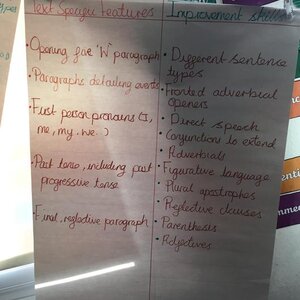 Text Specific Features
Opening five 'W' paragraph
Paragraphs detailing events
First person pronouns (I,
me, my, we.)
Past tense, including past
progressive tense
Final, reflective paragraph
Improvement skills
Different sentence
types
Fronted adverbial
openers
Direct speech
Conjunctions to extend
Adverbials
Figurative language
Plural apostrophes
Relative clauses
Parenthesis
Adjectives